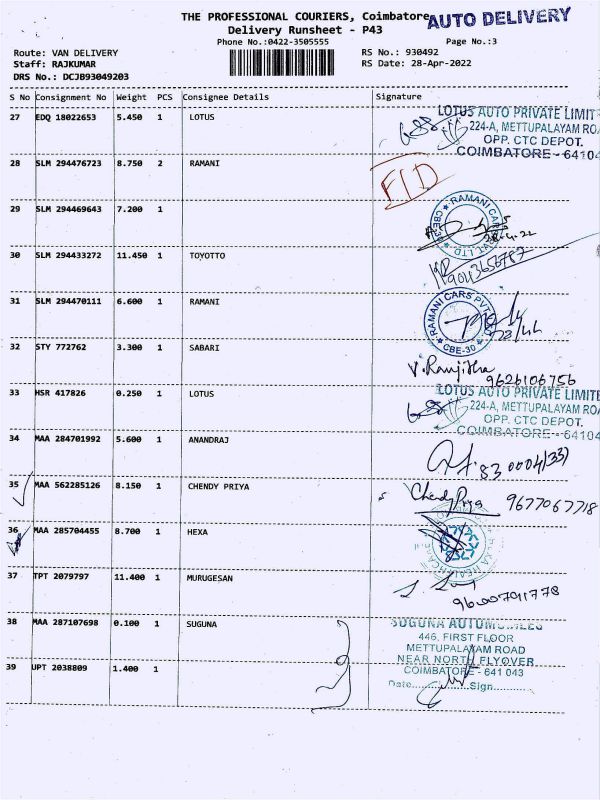 THE PROFESSIONAL COURIERS, Coimbatore
AUTO DELIVERY
Delivery Runsheet - P43
Phone No.:0422-3505555
Page No.:3
Route: VAN DELIVERY
RS No.: 930492
Staff: RAJKUMAR
RS Date: 28-Apr-2022
DRS No.: DCJB93049203
S No Consignment No Weight PCS Consignee Details Signature
27 EDQ 18022653 5.450 1 LOTUS
LOTUS AUTO PRIVATE LIMIT
224-A, METTUPALAYAM ROA
OPP. CTC DEPOT.
COIMBATORE - 64104
28 SLM 294476723 8.750 2 RAMANI
29 SLM 294469643 7.200 1
RAMANI CARS
CBE-30
30 SLM 294433272 11.450 1 TOYOTTO
31 SLM 294470111 6.600 1 RAMANI
RAMANI CARS PVT
CBE-30
32 STY 772762 3.300 1 SABARI
V. Ranjitha
9626106756
33 HSR 417826 0.250 1 LOTUS
LOTUS AUTO PRIVATE LIMITE
224-A, METTUPALAYAM ROA
OPP. CTC DEPOT.
COIMBATORE - 64104
34 MAA 284701992 5.600 1 ANANDRAJ
35 MAA 562285126 8.150 1 CHENDY PRIYA
Chendy Priya 9677067718
36 MAA 285704455 8.700 1 HEXA
37 TPT 2079797 11.400 1 MURUGESAN
38 MAA 287107698 0.100 1 SUGUNA
SUGUNA AUTOMOBILES
446, FIRST FLOOR
METTUPALAYAM ROAD
NEAR NORTH FLYOVER
COIMBATORE - 641 043
Date Sign
39 UPT 2038809 1.400 1